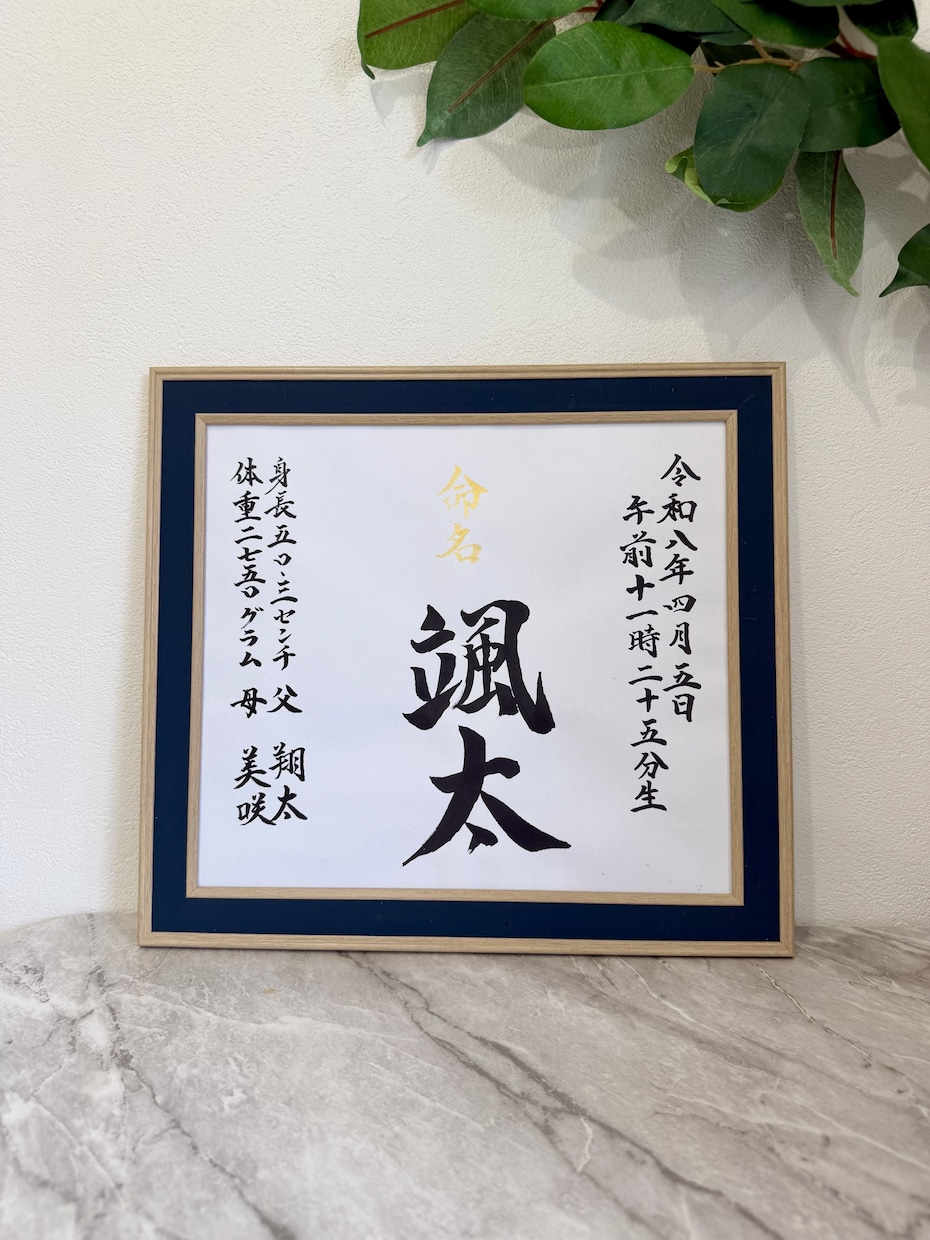 令和八年四月五日
午前十一時二十五分生
命名
颯太
身長五〇、三センチ 父 翔太
体重二七五〇グラム 母 美咲